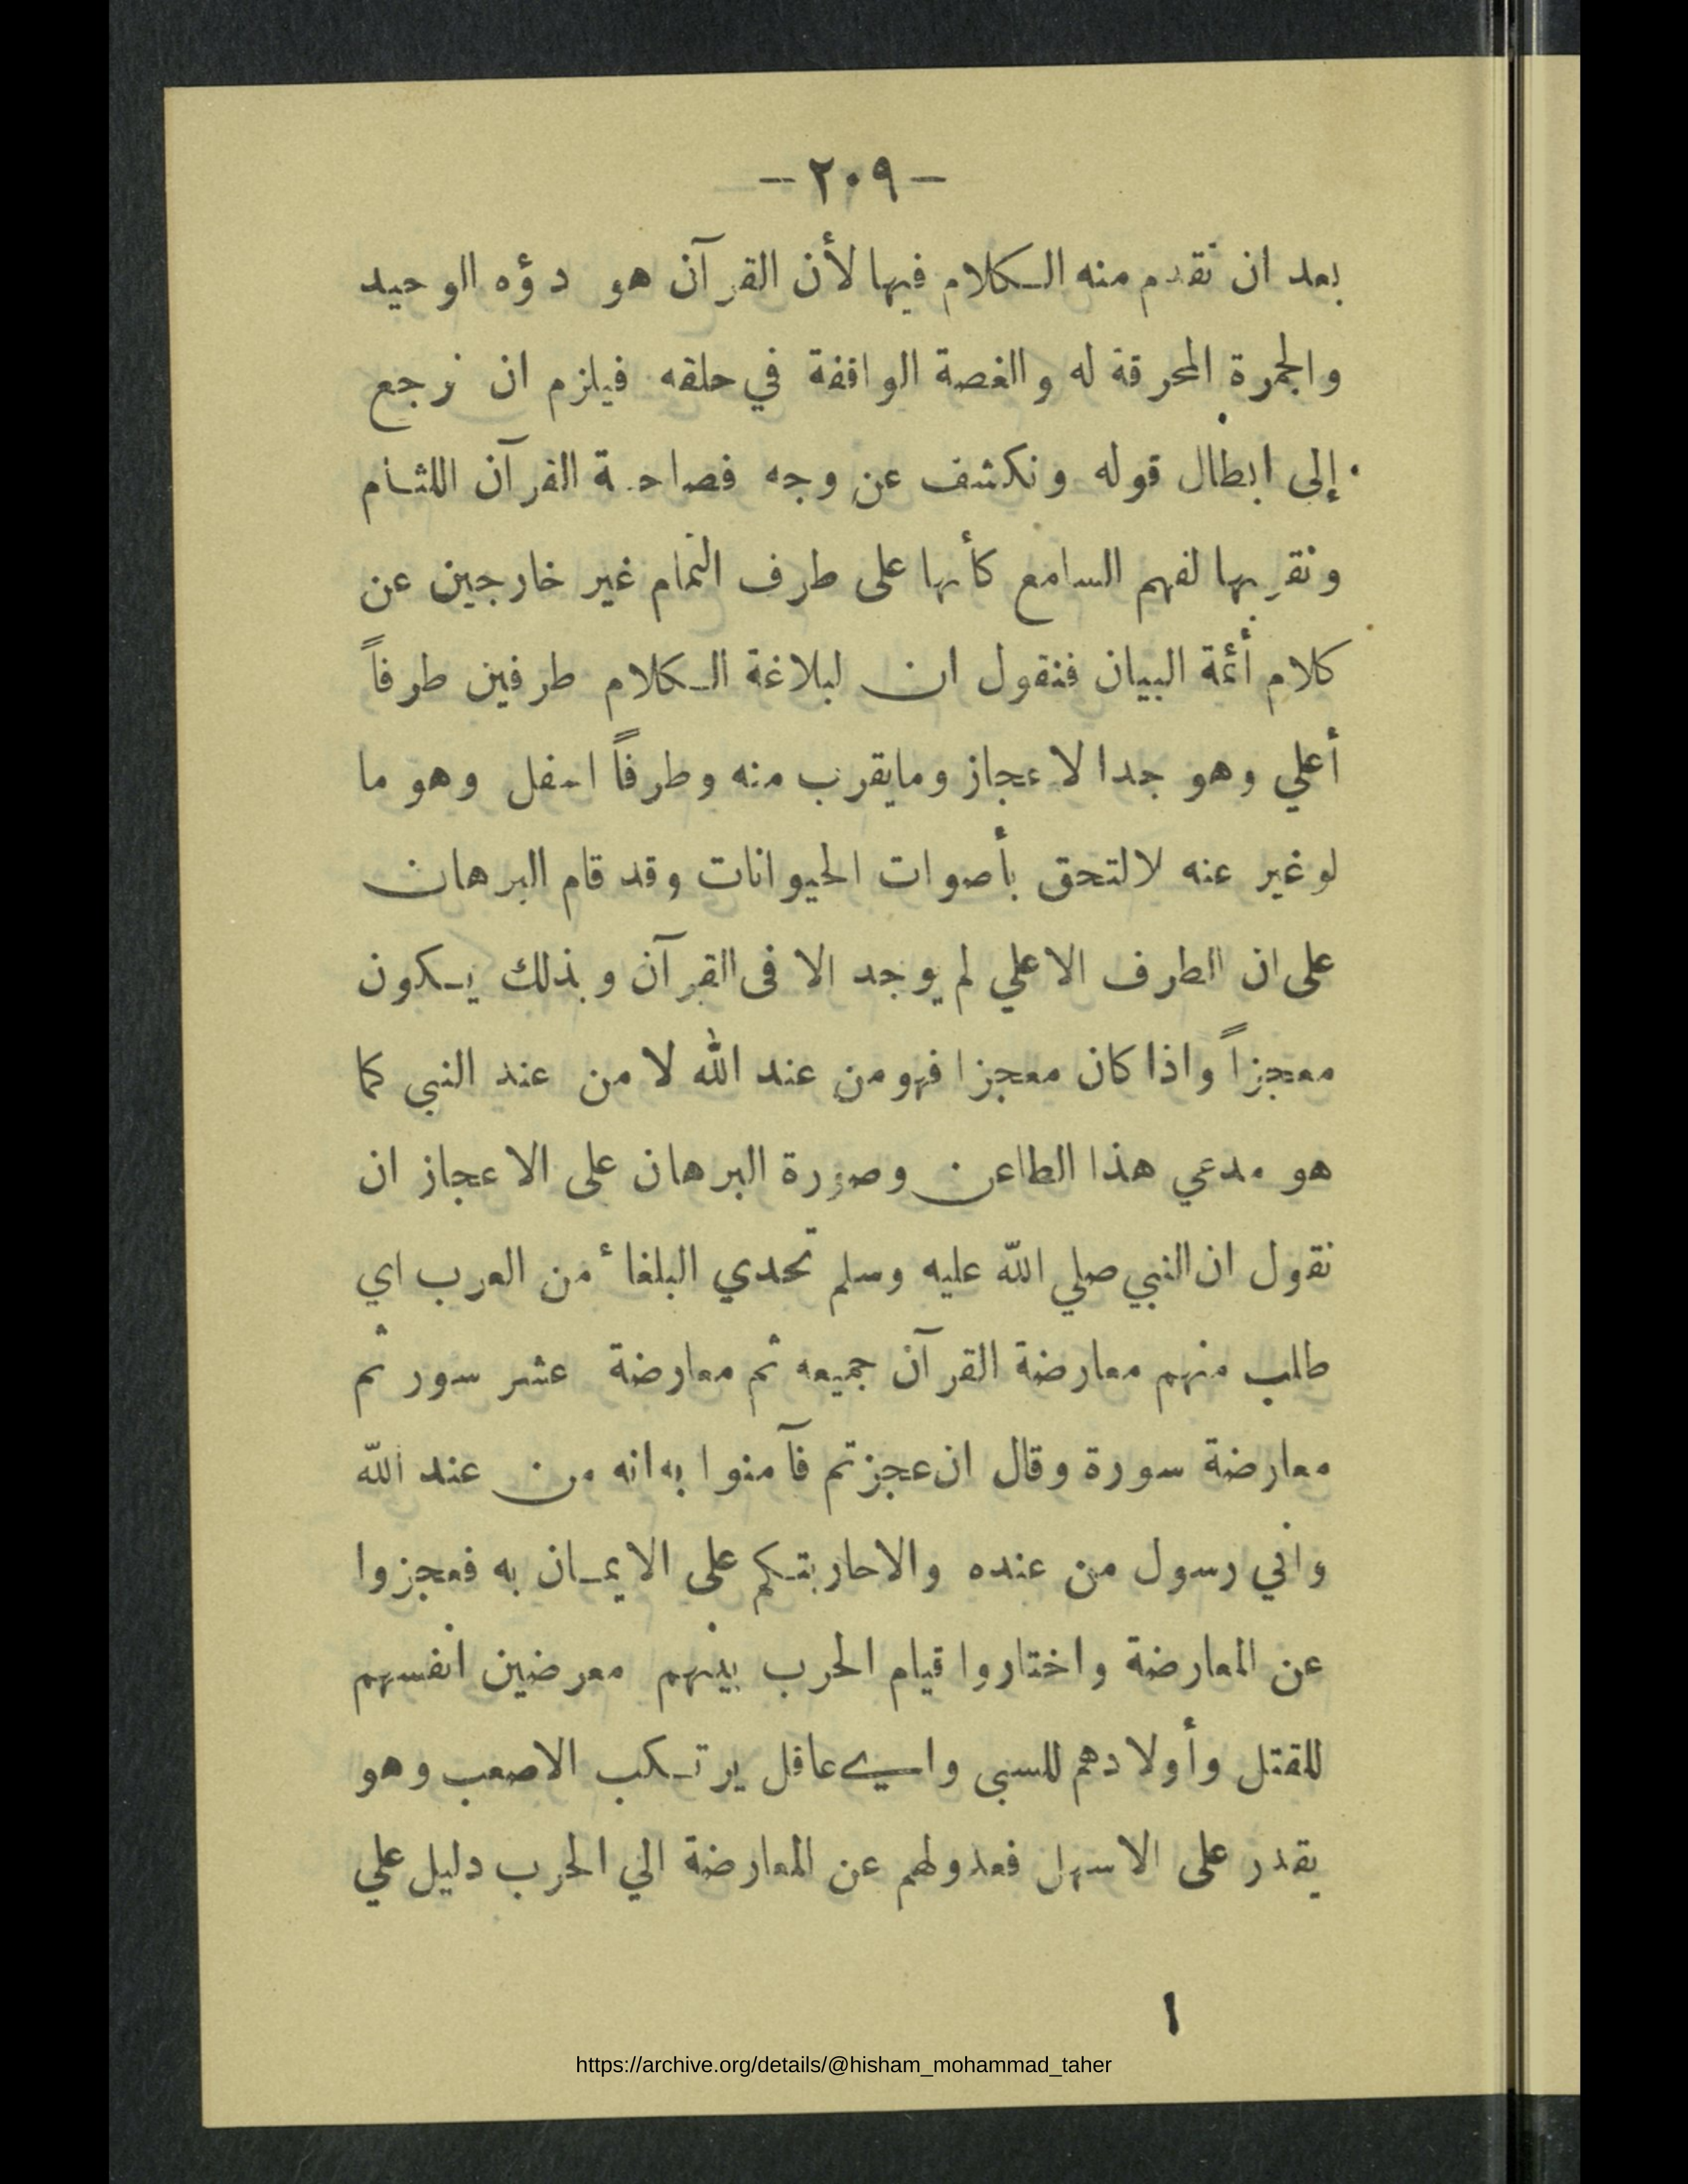 - ٢٠٩ -
بعد ان تقدم منه الكلام فيها لأن القرآن هو دؤه الوحيد
والجمرة المحرقة له والغصة الواقفة في حلقه فيلزم ان نرجع
إلى ابطال قوله ونكشف عن وجه فصاحة القرآن اللثام
ونقربها لفهم السامع كأنها على طرف التمام غير خارجين عن
كلام أئمة البيان فنقول ان لبلاغة الكلام طرفين طرفاً
أعلي وهو جدا لاعجاز ومايقرب منه وطرفاً اسفل وهو ما
لو غير عنه لالتحق بأصوات الحيوانات وقد قام البرهان
على ان الطرف الاعلي لم يوجد الا فى القرآن وبذلك يكون
معجزاً واذا كان معجزا فهو من عند الله لا من عند النبي كما
هو مدعي هذا الطاعن وصورة البرهان على الاعجاز ان
نقول ان النبي صلي الله عليه وسلم تحدي البلغاء من العرب اي
طلب منهم معارضة القرآن جميعه ثم معارضة عشر سور ثم
معارضة سورة وقال ان عجزتم فآمنوا به انه من عند الله
واني رسول من عنده والاحاربتكم على الايمان به فعجزوا
عن المعارضة واختاروا قيام الحرب بينهم معرضين انفسهم
للقتل وأولادهم للسبى واي عاقل يرتكب الاصعب وهو
يقدر على الاسهل فعدولهم عن المعارضة الي الحرب دليل علي
١
https://archive.org/details/@hisham_mohammad_taher